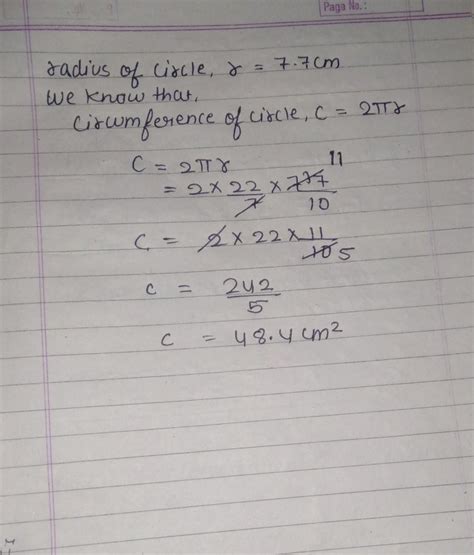 Page No.:
radius of circle, r = 7.7cm
We know that,
Circumference of circle, C = 2πr
C = 2πr
= 2 × 22/7 × 77/10 11
C = 2 × 22 × 11/10 5
C = 242/5
C = 48.4 cm²